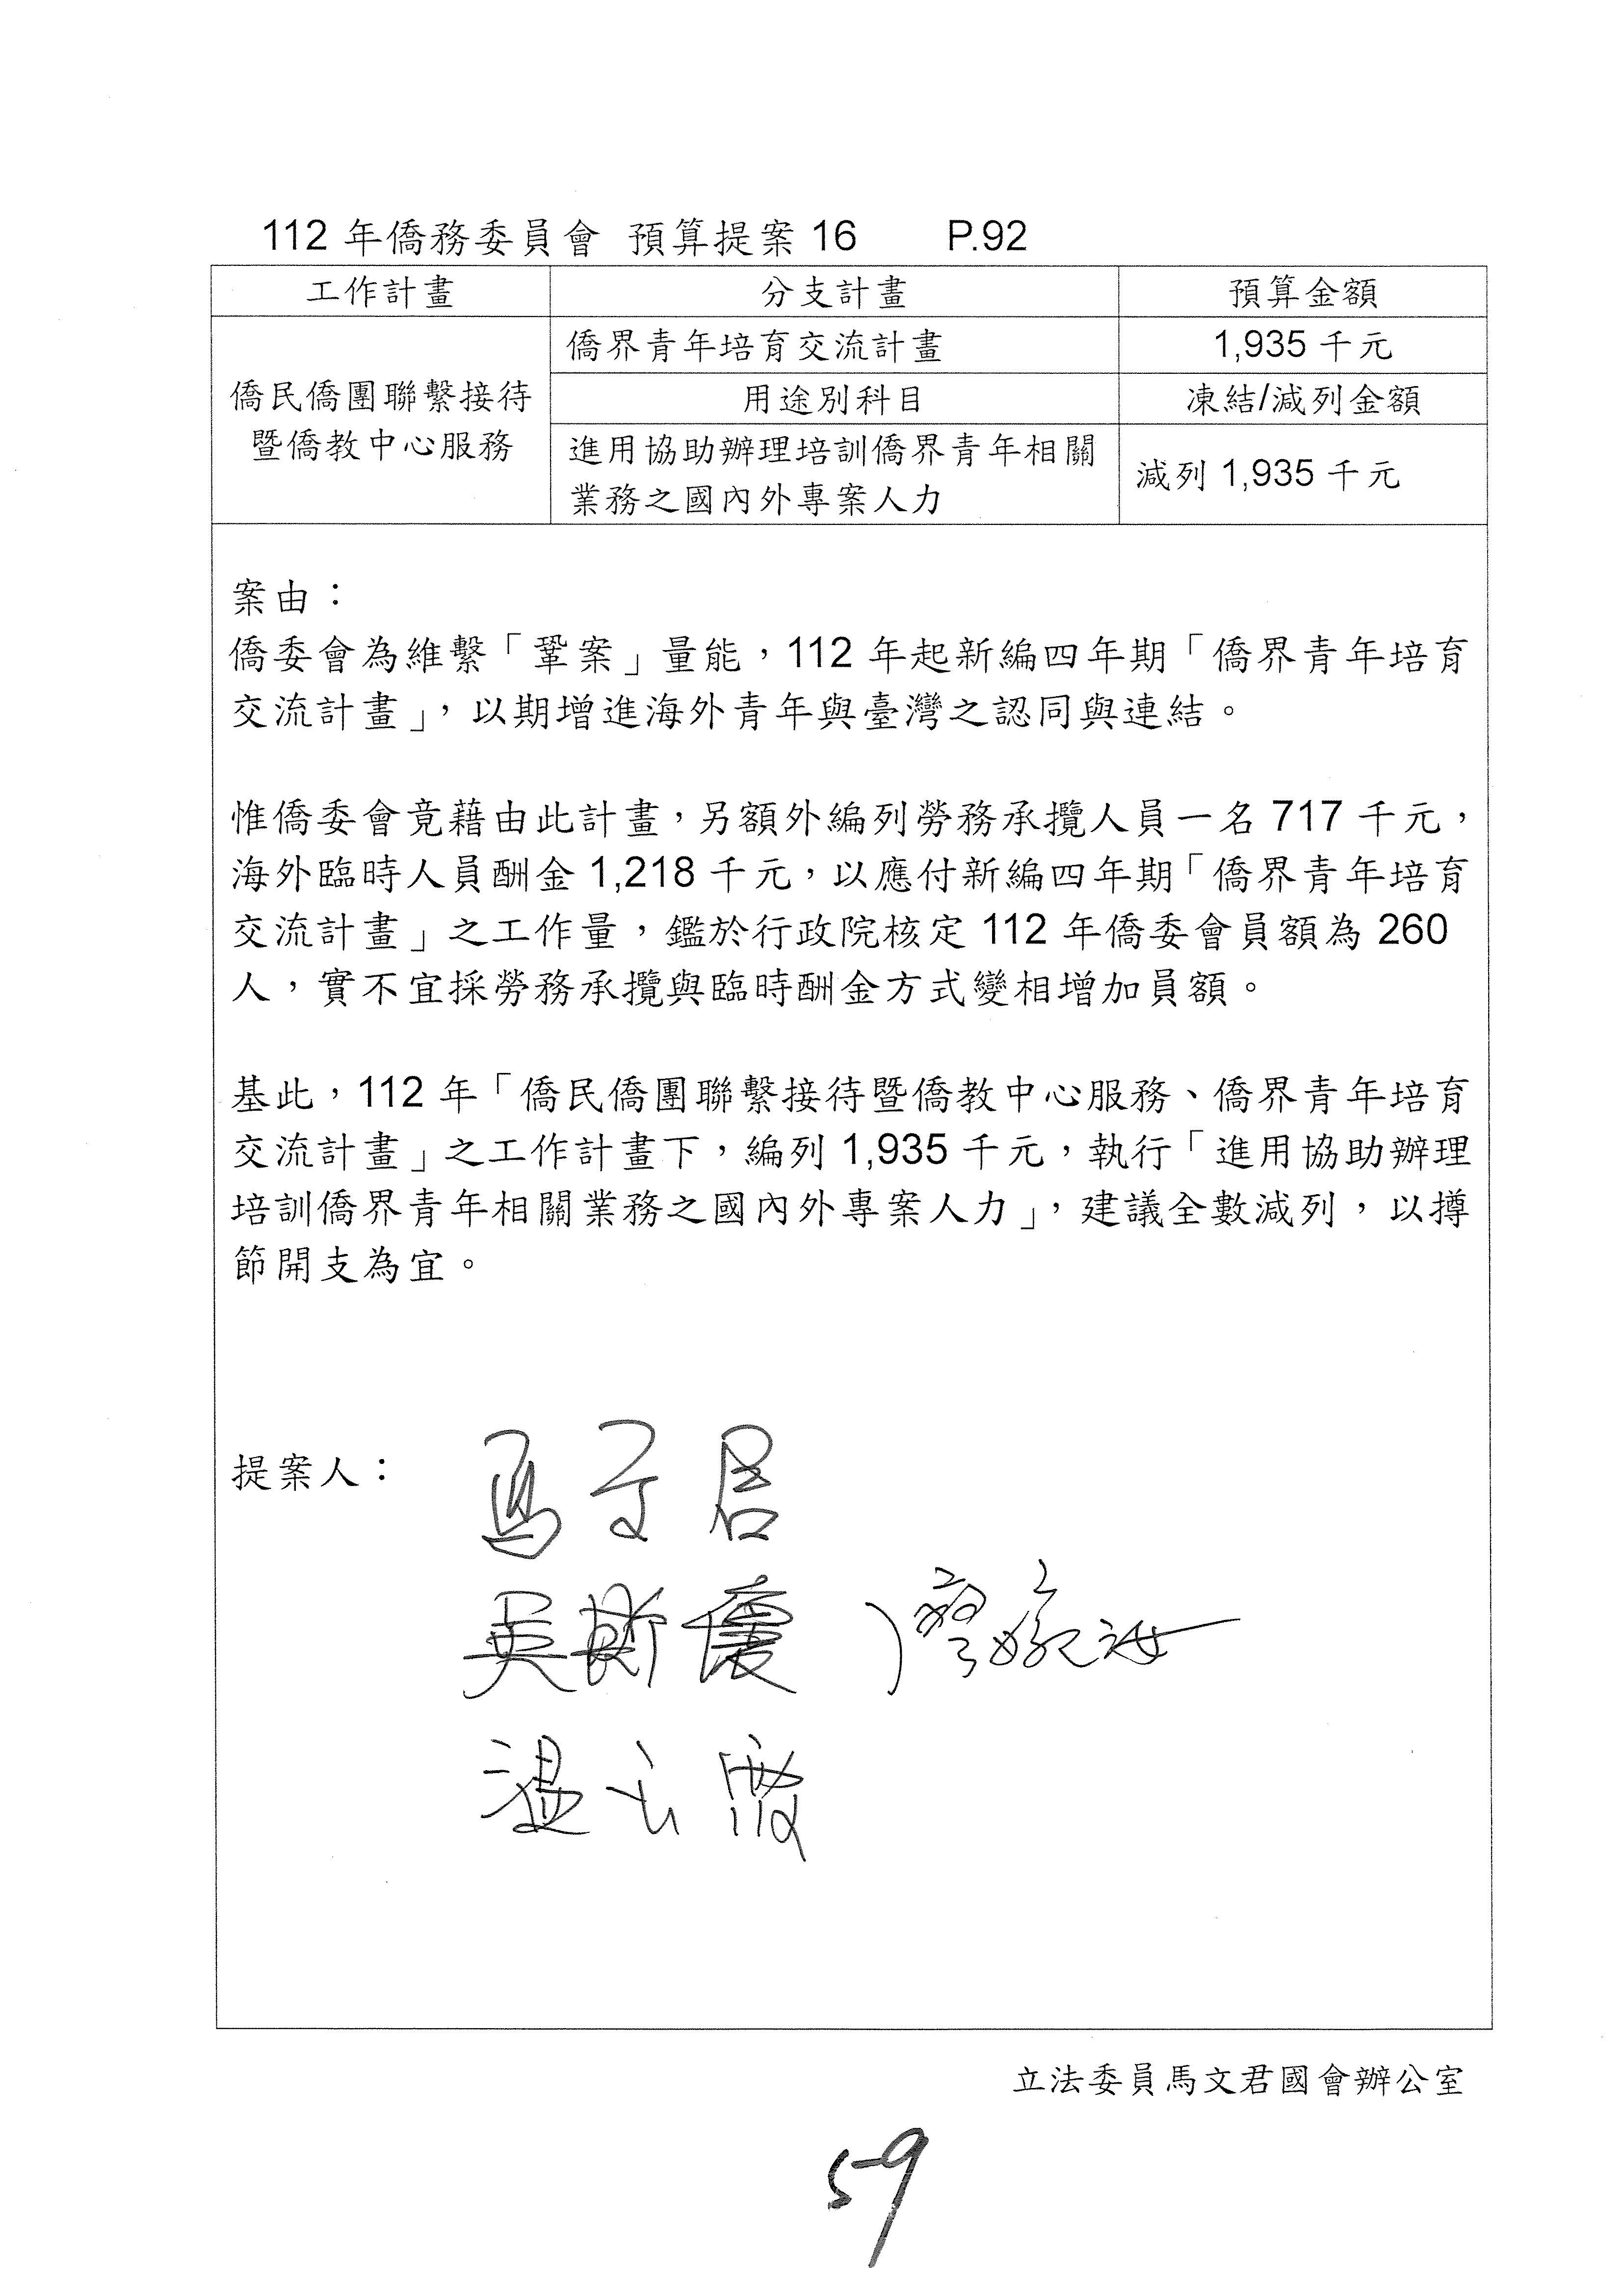 112 年僑務委員會 預算提案 16 P.92
工作計畫 分支計畫 預算金額
僑界青年培育交流計畫 1,935 千元
僑民僑團聯繫接待
暨僑教中心服務
用途別科目 凍結/減列金額
進用協助辦理培訓僑界青年相關
業務之國內外專案人力
減列 1,935 千元
案由：
僑委會為維繫「鞏案」量能，112 年起新編四年期「僑界青年培育
交流計畫」，以期增進海外青年與臺灣之認同與連結。
惟僑委會竟藉由此計畫，另額外編列勞務承攬人員一名 717 千元，
海外臨時人員酬金 1,218 千元，以應付新編四年期「僑界青年培育
交流計畫」之工作量，鑑於行政院核定 112 年僑委會員額為 260
人，實不宜採勞務承攬與臨時酬金方式變相增加員額。
基此，112 年「僑民僑團聯繫接待暨僑教中心服務、僑界青年培育
交流計畫」之工作計畫下，編列 1,935 千元，執行「進用協助辦理
培訓僑界青年相關業務之國內外專案人力」，建議全數減列，以撙
節開支為宜。
提案人：
馬文君
吳斯懷 廖婉汝
溫玉霞
立法委員馬文君國會辦公室
59